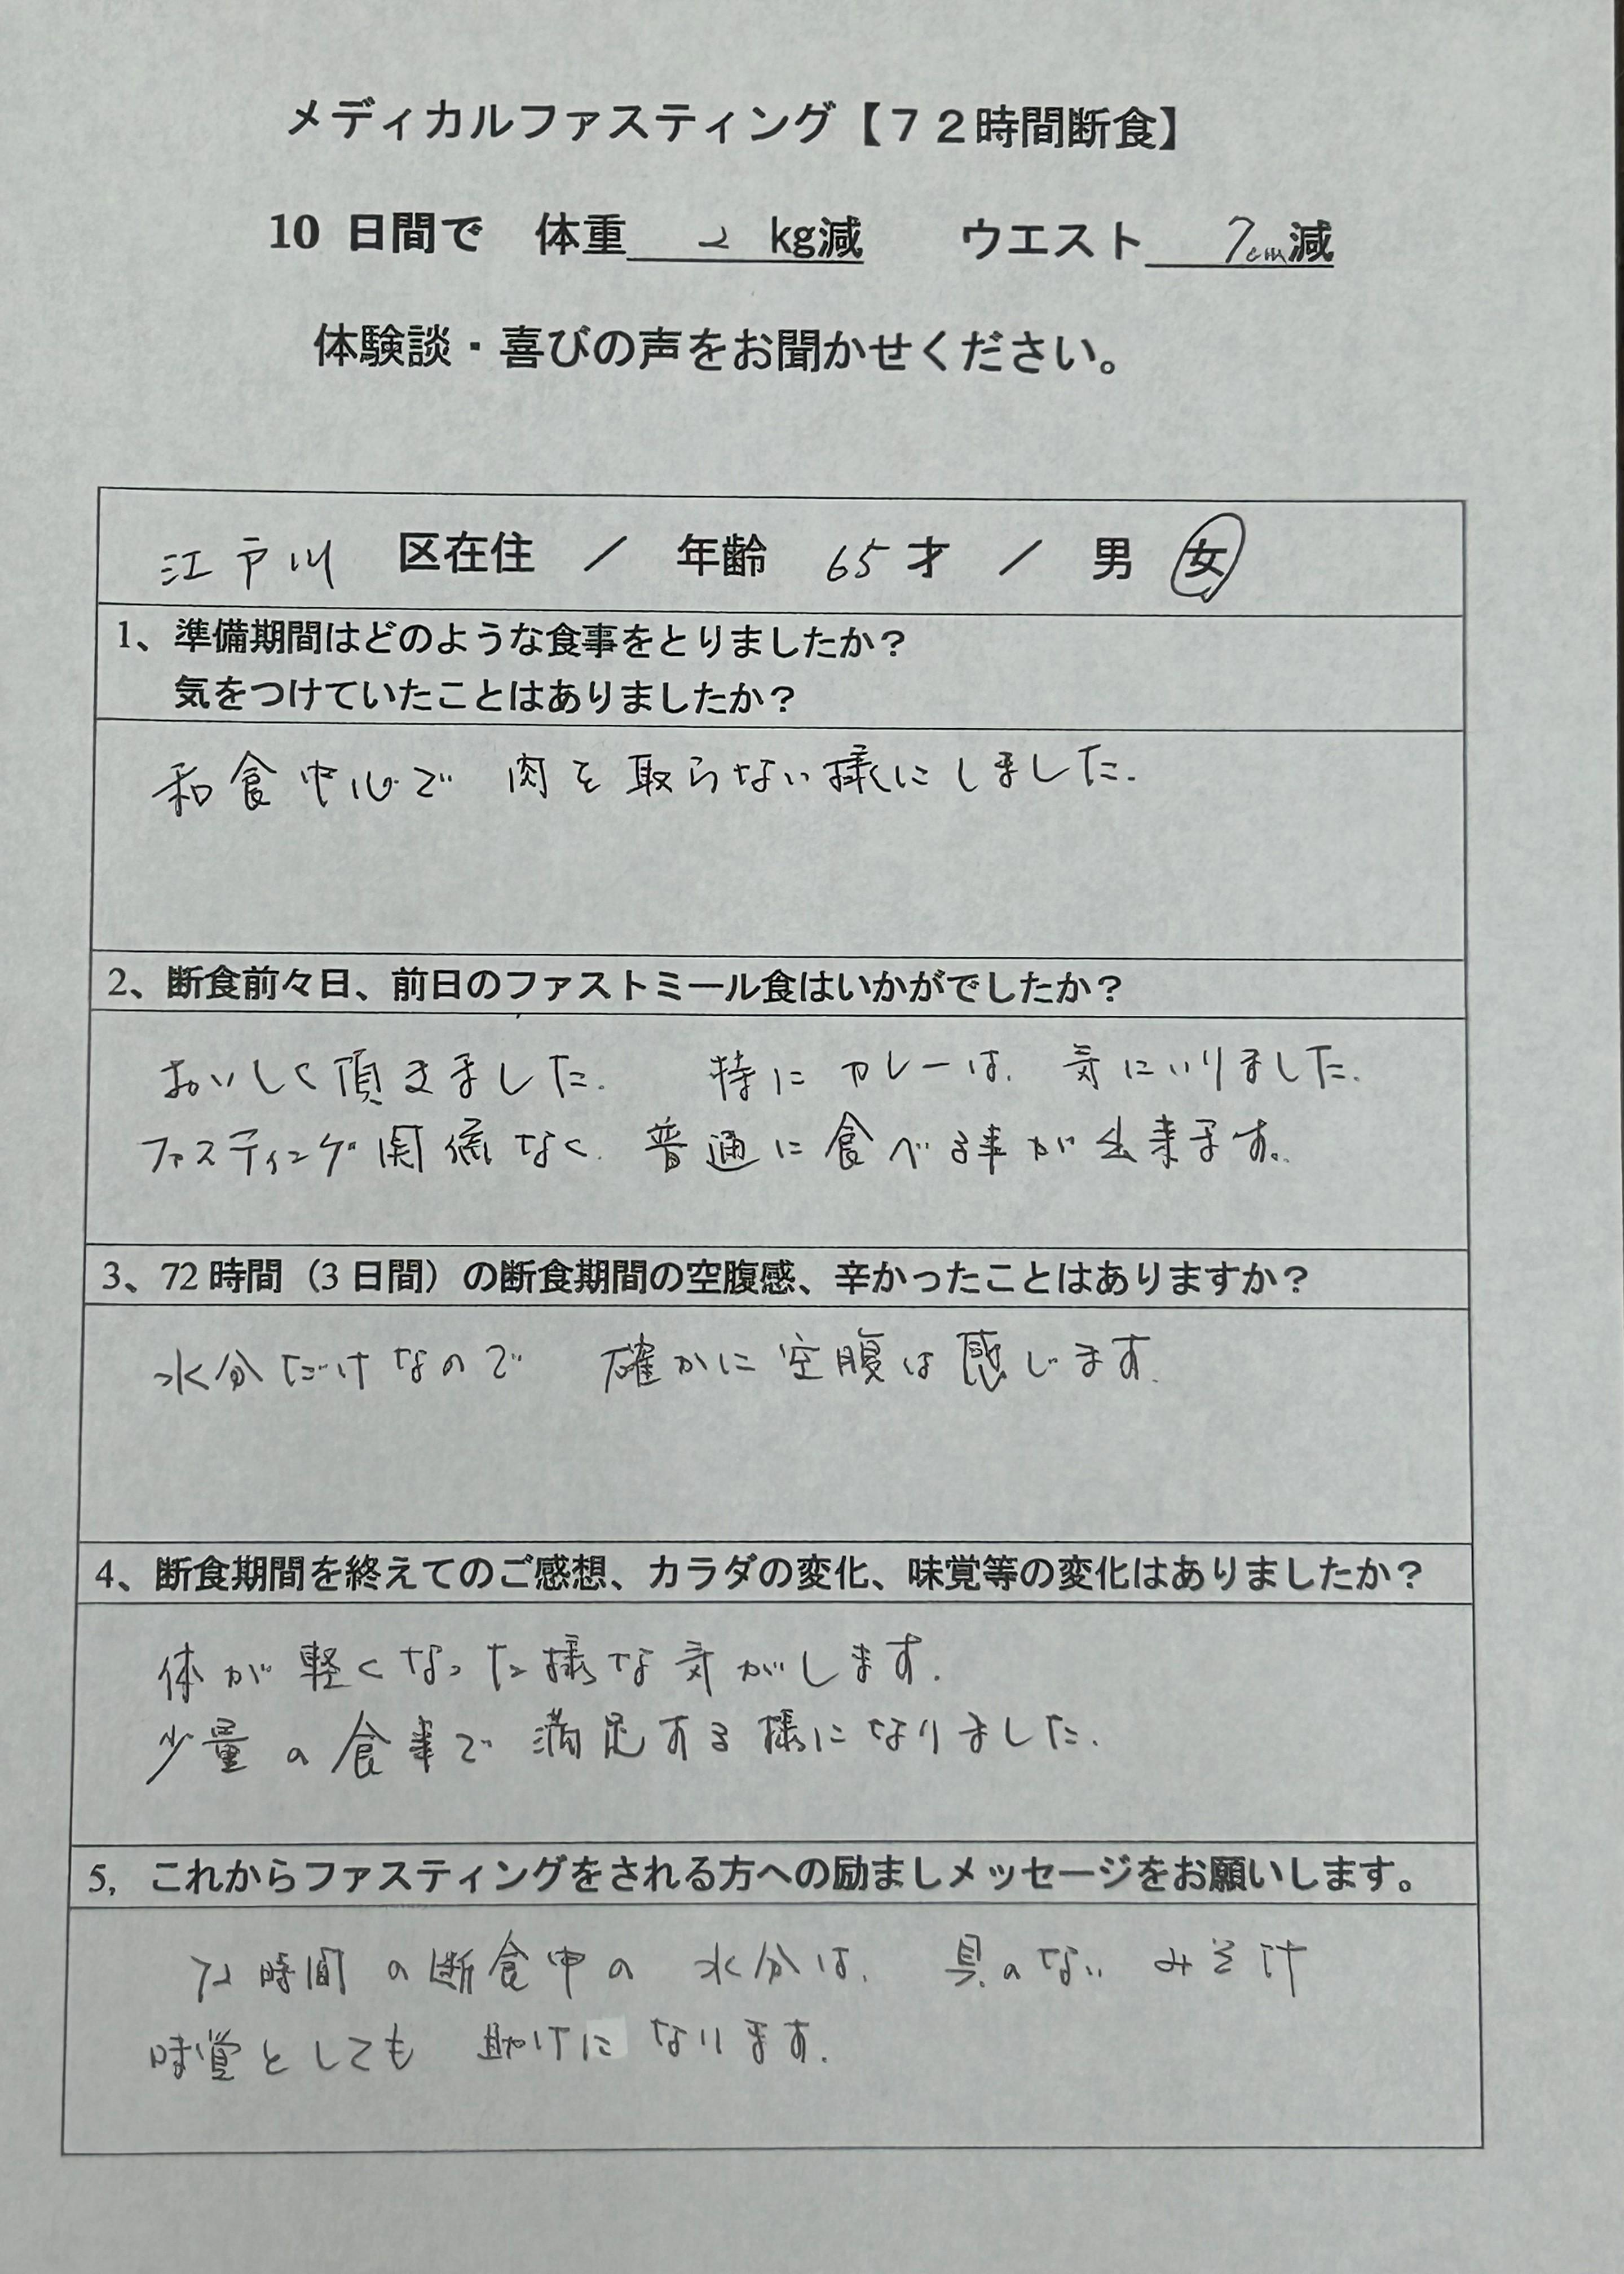 メディカルファスティング【７２時間断食】
10 日間で 体重 2 kg減 ウエスト 7cm減
体験談・喜びの声をお聞かせください。
江戸川 区在住 ／ 年齢 65才 ／ 男 女
1、準備期間はどのような食事をとりましたか？
気をつけていたことはありましたか？
和食中心で 肉を取らない様にしました.
2、断食前々日、前日のファストミール食はいかがでしたか？
おいしく頂きました. 特にカレーは、気にいりました.
ファスティング関係なく、普通に食べる事が出来ます。
3、72 時間（3 日間）の断食期間の空腹感、辛かったことはありますか？
水分だけなので 確かに空腹は感じます.
4、断食期間を終えてのご感想、カラダの変化、味覚等の変化はありましたか？
体が軽くなった様な気がします.
少量の食事で満足する様になりました.
5, これからファスティングをされる方への励ましメッセージをお願いします。
72時間の断食中の 水分は、具のない みそ汁
味覚としても 助けに なります.